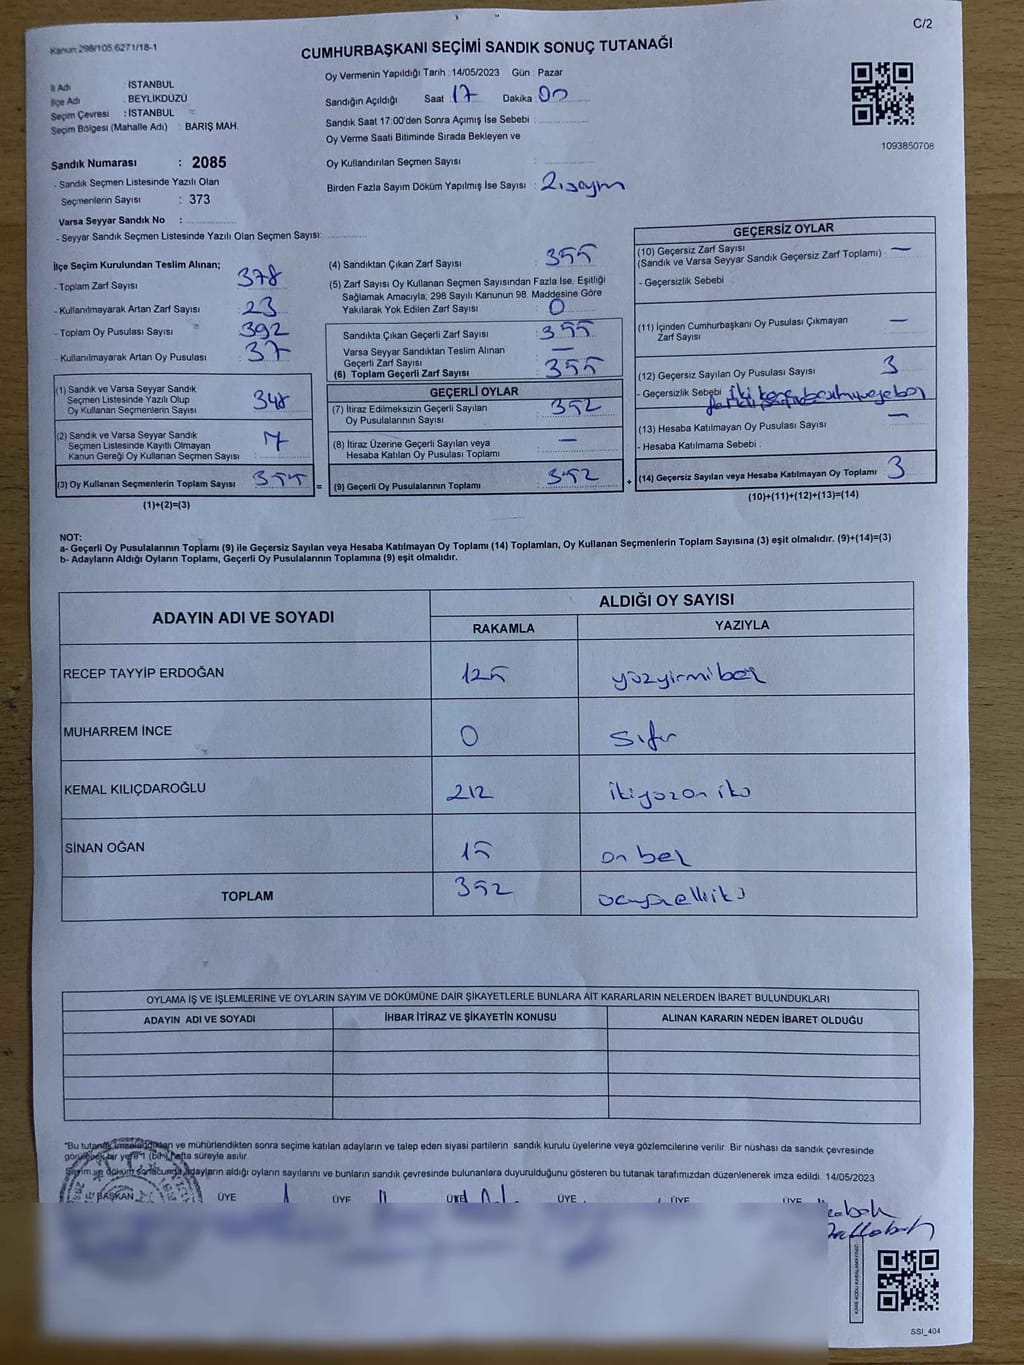 C/2
Kanun:298/105,6271/18-1
CUMHURBAŞKANI SEÇİMİ SANDIK SONUÇ TUTANAĞI
İl Adı : İSTANBUL
İlçe Adı : BEYLİKDÜZÜ
Seçim Çevresi : İSTANBUL
Seçim Bölgesi (Mahalle Adı) : BARIŞ MAH.
Sandık Numarası : 2085
- Sandık Seçmen Listesinde Yazılı Olan
Seçmenlerin Sayısı : 373
Varsa Seyyar Sandık No :
- Seyyar Sandık Seçmen Listesinde Yazılı Olan Seçmen Sayısı:
Oy Vermenin Yapıldığı Tarih : 14/05/2023 Gün : Pazar
Sandığın Açıldığı Saat 17 Dakika 00
Sandık Saat 17:00'den Sonra Açımış İse Sebebi :
Oy Verme Saati Bitiminde Sırada Bekleyen ve
Oy Kullandırılan Seçmen Sayısı :
Birden Fazla Sayım Döküm Yapılmış İse Sayısı : 2.sayım
1093850708
İlçe Seçim Kurulundan Teslim Alınan;
- Toplam Zarf Sayısı : 378
- Kullanılmayarak Artan Zarf Sayısı : 23
- Toplam Oy Pusulası Sayısı : 392
- Kullanılmayarak Artan Oy Pusulası : 37
(1) Sandık ve Varsa Seyyar Sandık
Seçmen Listesinde Yazılı Olup
Oy Kullanan Seçmenlerin Sayısı : 348
(2) Sandık ve Varsa Seyyar Sandık
Seçmen Listesinde Kayıtlı Olmayan
Kanun Gereği Oy Kullanan Seçmen Sayısı : 7
(3) Oy Kullanan Seçmenlerin Toplam Sayısı : 355
(1)+(2)=(3)
(4) Sandıktan Çıkan Zarf Sayısı : 355
(5) Zarf Sayısı Oy Kullanan Seçmen Sayısından Fazla İse, Eşitliği
Sağlamak Amacıyla; 298 Sayılı Kanunun 98. Maddesine Göre
Yakılarak Yok Edilen Zarf Sayısı : 0
Sandıkta Çıkan Geçerli Zarf Sayısı : 355
Varsa Seyyar Sandıktan Teslim Alınan
Geçerli Zarf Sayısı : —
(6) Toplam Geçerli Zarf Sayısı : 355
GEÇERLİ OYLAR
(7) İtiraz Edilmeksizin Geçerli Sayılan
Oy Pusulasının Sayısı : 352
(8) İtiraz Üzerine Geçerli Sayılan veya
Hesaba Katılan Oy Pusulası Toplamı : —
= (9) Geçerli Oy Pusulalarının Toplamı : 352
GEÇERSİZ OYLAR
(10) Geçersiz Zarf Sayısı
(Sandık ve Varsa Seyyar Sandık Geçersiz Zarf Toplamı) : —
- Geçersizlik Sebebi :
(11) İçinden Cumhurbaşkanı Oy Pusulası Çıkmayan
Zarf Sayısı : —
(12) Geçersiz Sayılan Oy Pusulası Sayısı : 3
- Geçersizlik Sebebi :
(13) Hesaba Katılmayan Oy Pusulası Sayısı : —
- Hesaba Katılmama Sebebi :
+ (14) Geçersiz Sayılan veya Hesaba Katılmayan Oy Toplamı : 3
(10)+(11)+(12)+(13)=(14)
NOT:
a- Geçerli Oy Pusulalarının Toplamı (9) ile Geçersiz Sayılan veya Hesaba Katılmayan Oy Toplamı (14) Toplamları, Oy Kullanan Seçmenlerin Toplam Sayısına (3) eşit olmalıdır. (9)+(14)=(3)
b- Adayların Aldığı Oyların Toplamı, Geçerli Oy Pusulalarının Toplamına (9) eşit olmalıdır.
ADAYIN ADI VE SOYADI
ALDIĞI OY SAYISI
RAKAMLA YAZIYLA
RECEP TAYYİP ERDOĞAN 125 yüzyirmibeş
MUHARREM İNCE 0 Sıfır
KEMAL KILIÇDAROĞLU 212 ikiyüzon iki
SİNAN OĞAN 15 on beş
TOPLAM 352 üçyüzelliiki
OYLAMA İŞ VE İŞLEMLERİNE VE OYLARIN SAYIM VE DÖKÜMÜNE DAİR ŞİKAYETLERLE BUNLARA AİT KARARLARIN NELERDEN İBARET BULUNDUKLARI
ADAYIN ADI VE SOYADI İHBAR İTİRAZ VE ŞİKAYETİN KONUSU ALINAN KARARIN NEDEN İBARET OLDUĞU
*Bu tutanak imzalandıktan ve mühürlendikten sonra seçime katılan adayların ve talep eden siyasi partilerin sandık kurulu üyelerine veya gözlemcilerine verilir. Bir nüshası da sandık çevresinde
görülecek bir yere 1 (bir) hafta süreyle asılır.
Sayım ve döküm sonucunda adayların aldığı oyların sayılarını ve bunların sandık çevresinde bulunanlara duyurulduğunu gösteren bu tutanak tarafımızdan düzenlenerek imza edildi. 14/05/2023
BAŞKAN ÜYE ÜYE ÜYE ÜYE ÜYE ÜYE
SSI_404